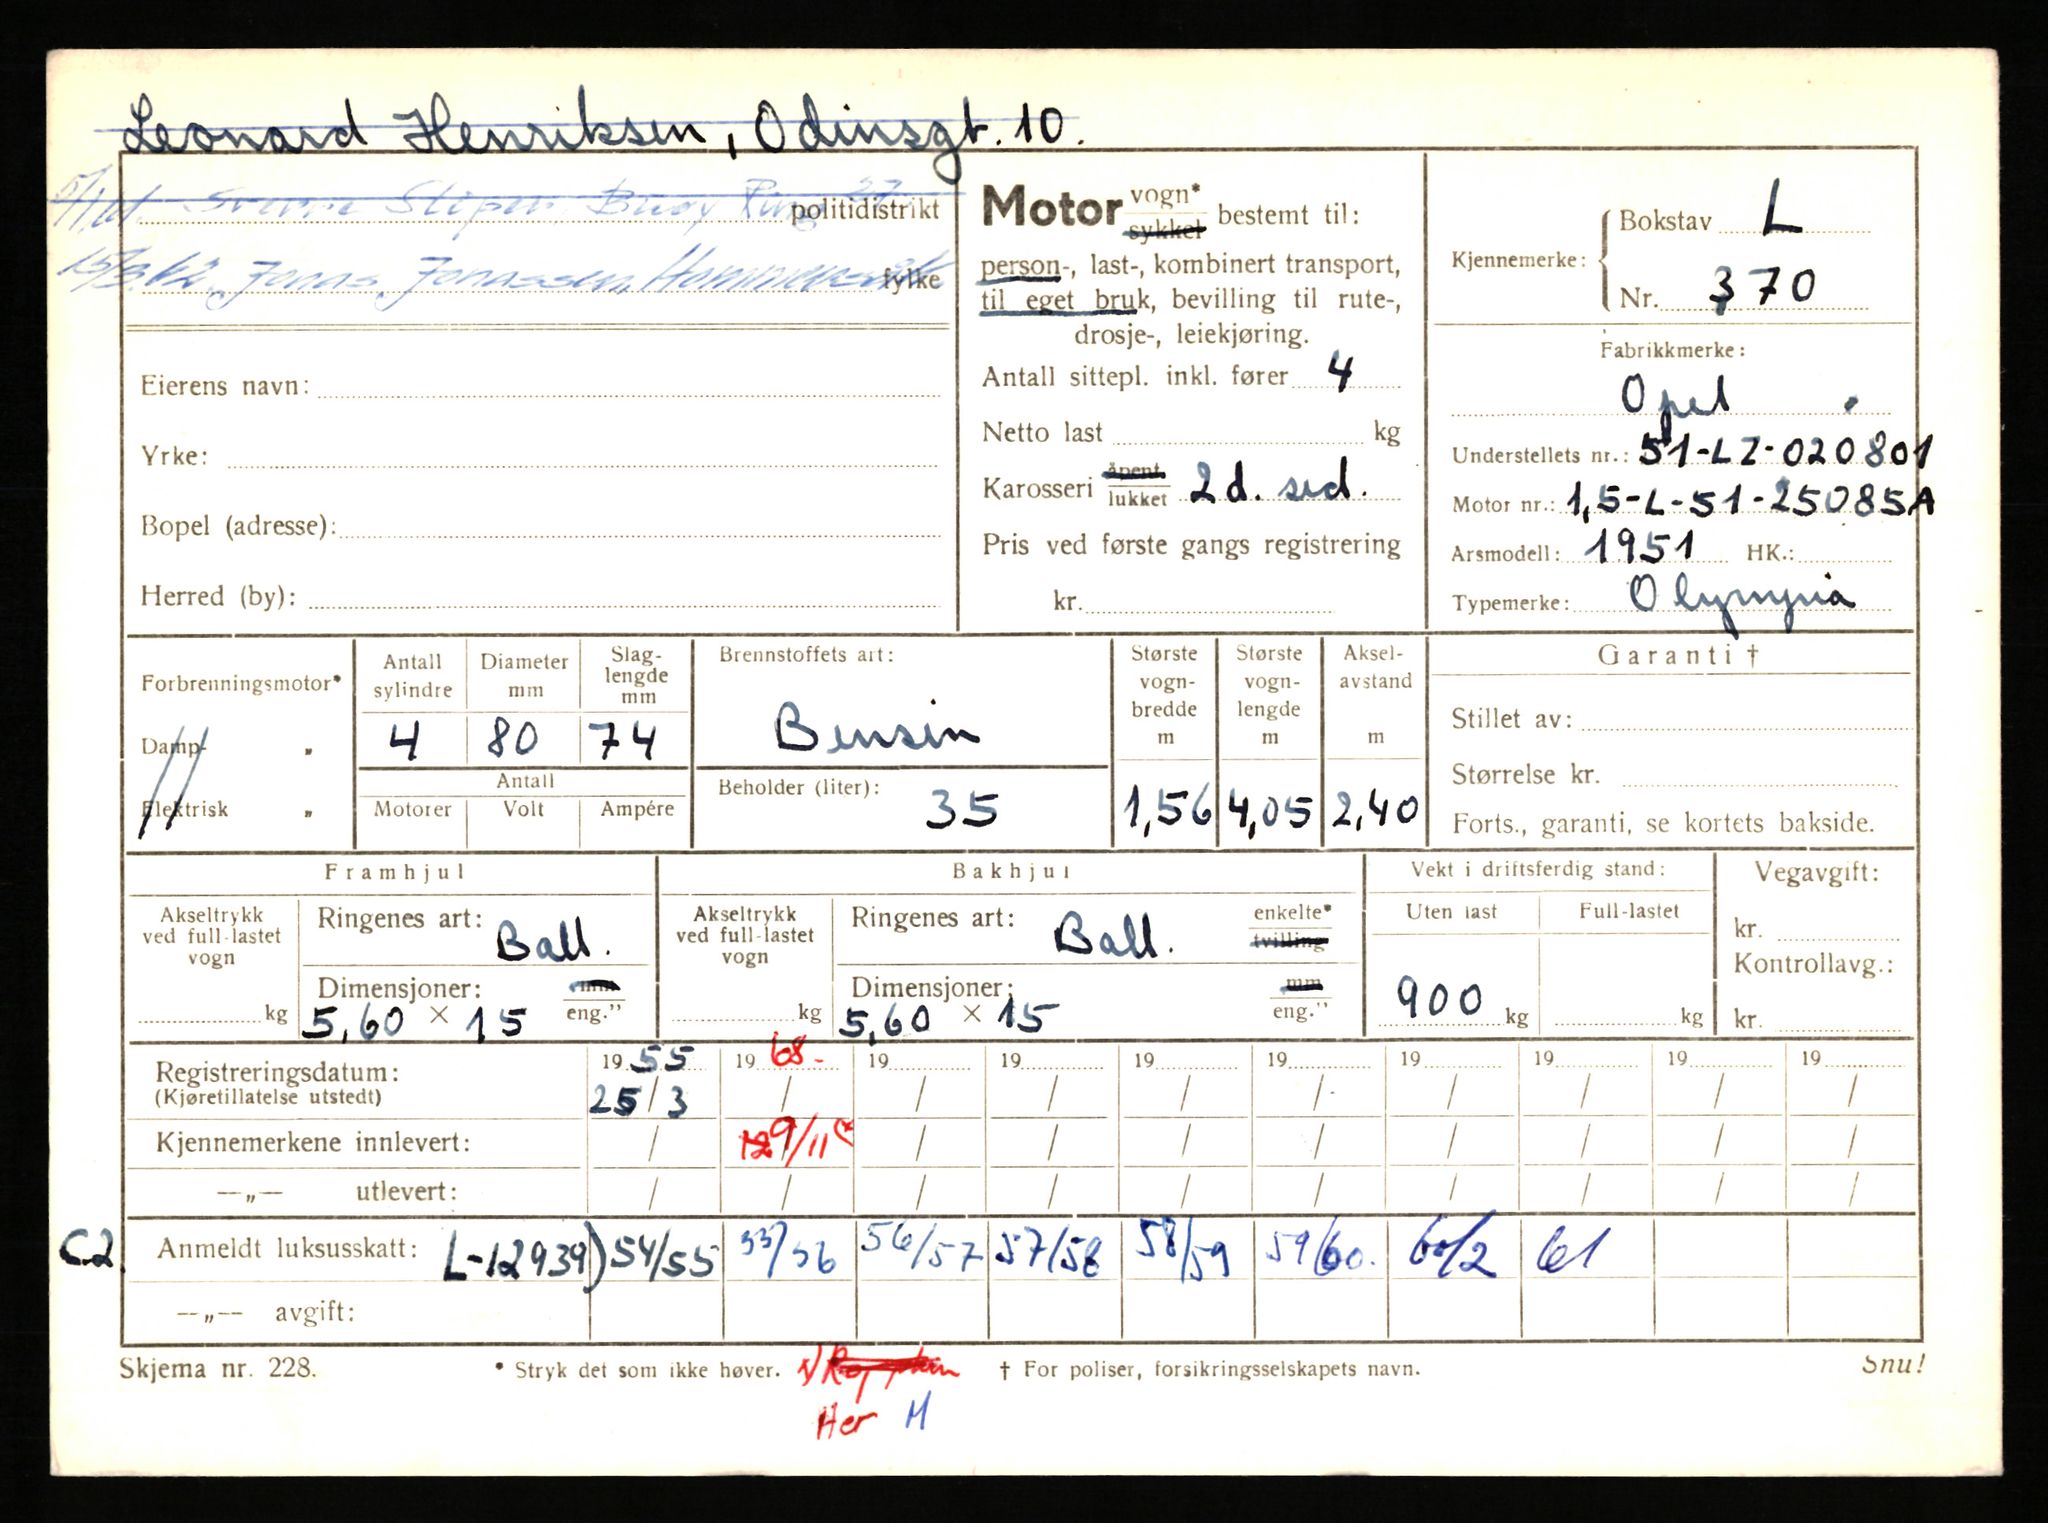 Leonard Henriksen, Odinsgt. 10.
5/1 61. Sverre Buøy Ring 27
politidistrikt
15/3.62. Jonas Jonassen,
fylke
Eierens navn:
Yrke:
Bopel (adresse):
Herred (by):
Motor vogn* sykkel bestemt til:
person-, last-, kombinert transport,
til eget bruk, bevilling til rute-,
drosje-, leiekjøring.
Antall sittepl. inkl. fører 4
Netto last kg
Karosseri åpent lukket 2 d. sed.
Pris ved første gangs registrering
kr.
Kjennemerke: Bokstav L
Nr. 370
Fabrikkmerke:
Opel
Understellets nr.: 51-LZ-020801
Motor nr.: 1,5-L-51-25085A
Arsmodell: 1951 HK.:
Typemerke: Olympia
Forbrenningsmotor*
Damp- „
Elektrisk „
Antall sylindre 4
Diameter mm 80
Slag-lengde mm 74
Antall
Motorer Volt Ampére
Brennstoffets art:
Bensin
Beholder (liter): 35
Største vogn-bredde m 1,56
Største vogn-lengde m 4,05
Aksel-avstand m 2,40
Garanti †
Stillet av:
Størrelse kr.
Forts., garanti, se kortets bakside.
Framhjul
Akseltrykk ved full-lastet vogn
kg
Ringenes art: Ball.
Dimensjoner: mm eng."
5,60 × 15
Bakhjul
Akseltrykk ved full-lastet vogn
kg
Ringenes art: Ball. enkelte* tvilling
Dimensjoner: mm eng."
5,60 × 15
Vekt i driftsferdig stand:
Uten last Full-lastet
900 kg kg
Vegavgift:
kr.
Kontrollavg.:
kr.
Registreringsdatum: 19 55 19 68- 19 19 19 19 19 19 19 19
(Kjøretillatelse utstedt) 25/3 / / / / / / / / /
Kjennemerkene innlevert: / 129/11 / / / / / / / /
—„— utlevert: / / / / / / / / / /
C.2 Anmeldt luksusskatt: L-12939) 54/55 55/56 56/57 57/58 58/59 59/60. 60/2 61
—„— avgift:
Skjema nr. 228. * Stryk det som ikke høver. † For poliser, forsikringsselskapets navn. Snu!
Her M